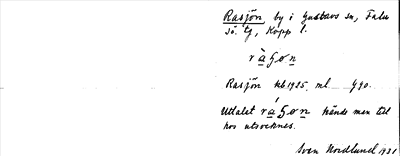 Rasjön, by i Gustavs sn, Falu
sö. tg, Kopp l.
ràʃøn
Rasjön hb 1925. ml 490.
Uttalet ráʃøn hände men till
hos utsocknes.
Sven Nordlund 1931